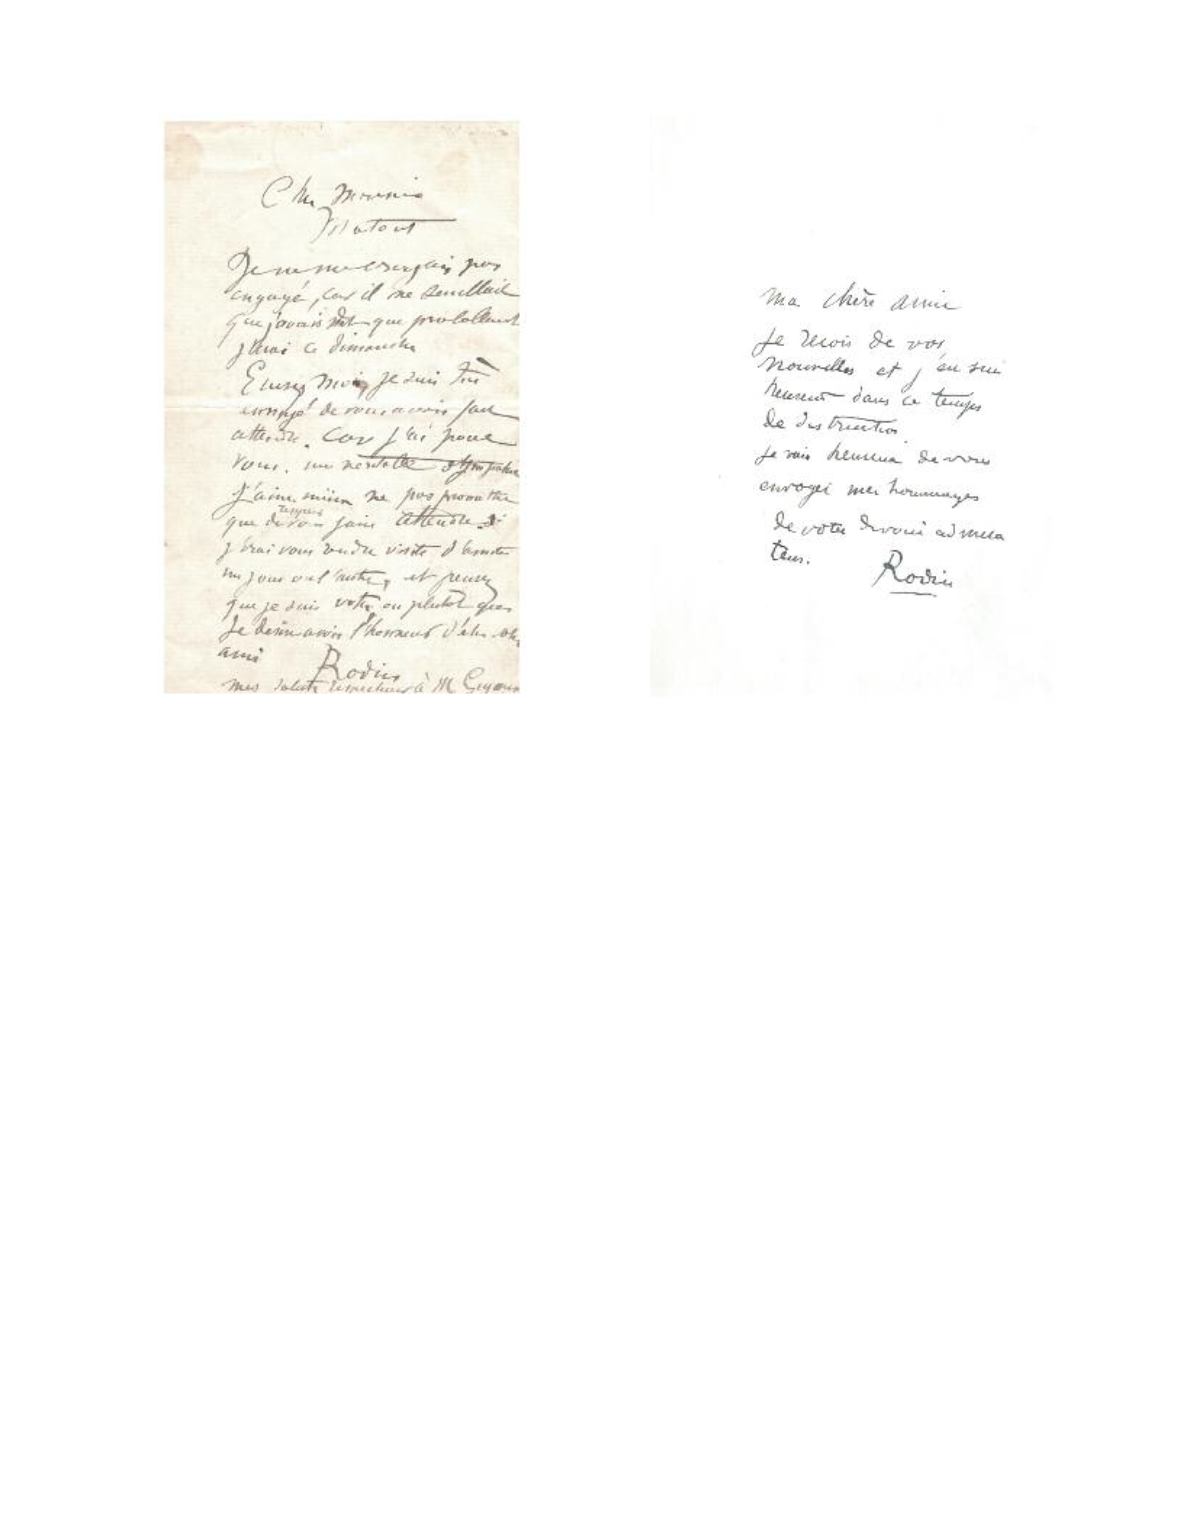 Cher Monsieur
Matout
Je ne me croyais pas
engagé, car il me semblait
que j'avais dit que probablement
j'irai ce dimanche
Excusez moi, je suis très
ennuyé de vous avoir fait
attendre. Car j'ai pour
vous. une véritable sympathie
J'aime mieux ne pas promettre
que de vous faire attendre
toujours
j'irai vous rendre visite
un jour ou l'autre, et pensez
que je suis votre ou plutôt que
Je désire avoir l'honneur d'être votre
ami
Rodin
mes saluts respectueux à M
ma chère amie
Je recois de vos
nouvelles et j'en suis
heureux dans ce temps
de destruction
Je suis heureux de vous
envoyer mes hommages
de votre dévoué admira
teur.
Rodin